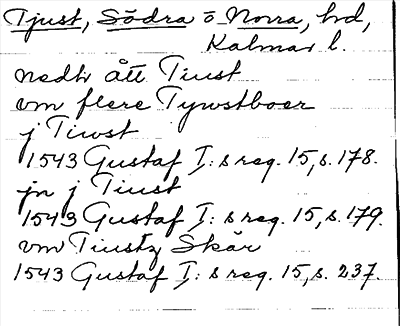 Tjust, Södra o Norra, hd,
Kalmar l.
nedh ått Tiust
vm flere Tywstboer
j Tiwst
1543 Gustaf I: s reg. 15, s. 178.
jn j Tiust
1543 Gustaf I: s reg. 15, s. 179.
vm Tiustz Skär
1543 Gustaf I: s reg. 15, s. 237.